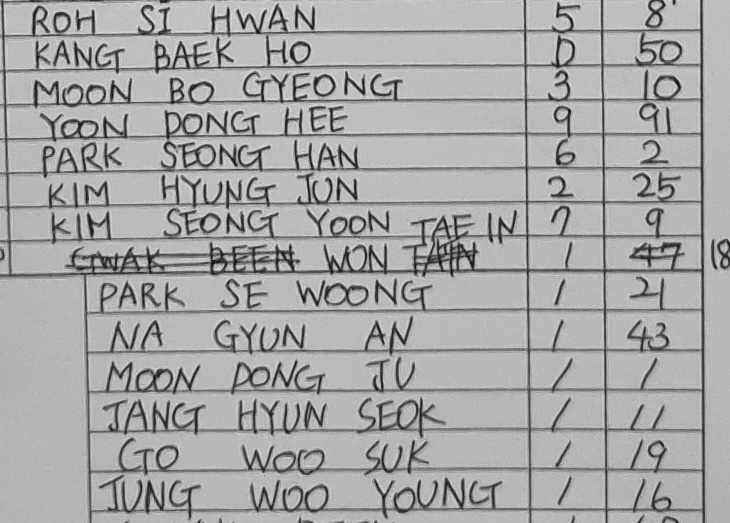 ROH SI HWAN 5 8
KANG BAEK HO D 50
MOON BO GYEONG 3 10
YOON DONG HEE 9 91
PARK SEONG HAN 6 2
KIM HYUNG JUN 2 25
KIM SEONG YOON 7 9
TAE IN
GWAK BEEN WON 1 47 18
PARK SE WOONG 1 21
NA GYUN AN 1 43
MOON DONG JU 1 1
JANG HYUN SEOK 1 11
GO WOO SUK 1 19
JUNG WOO YOUNG 1 16